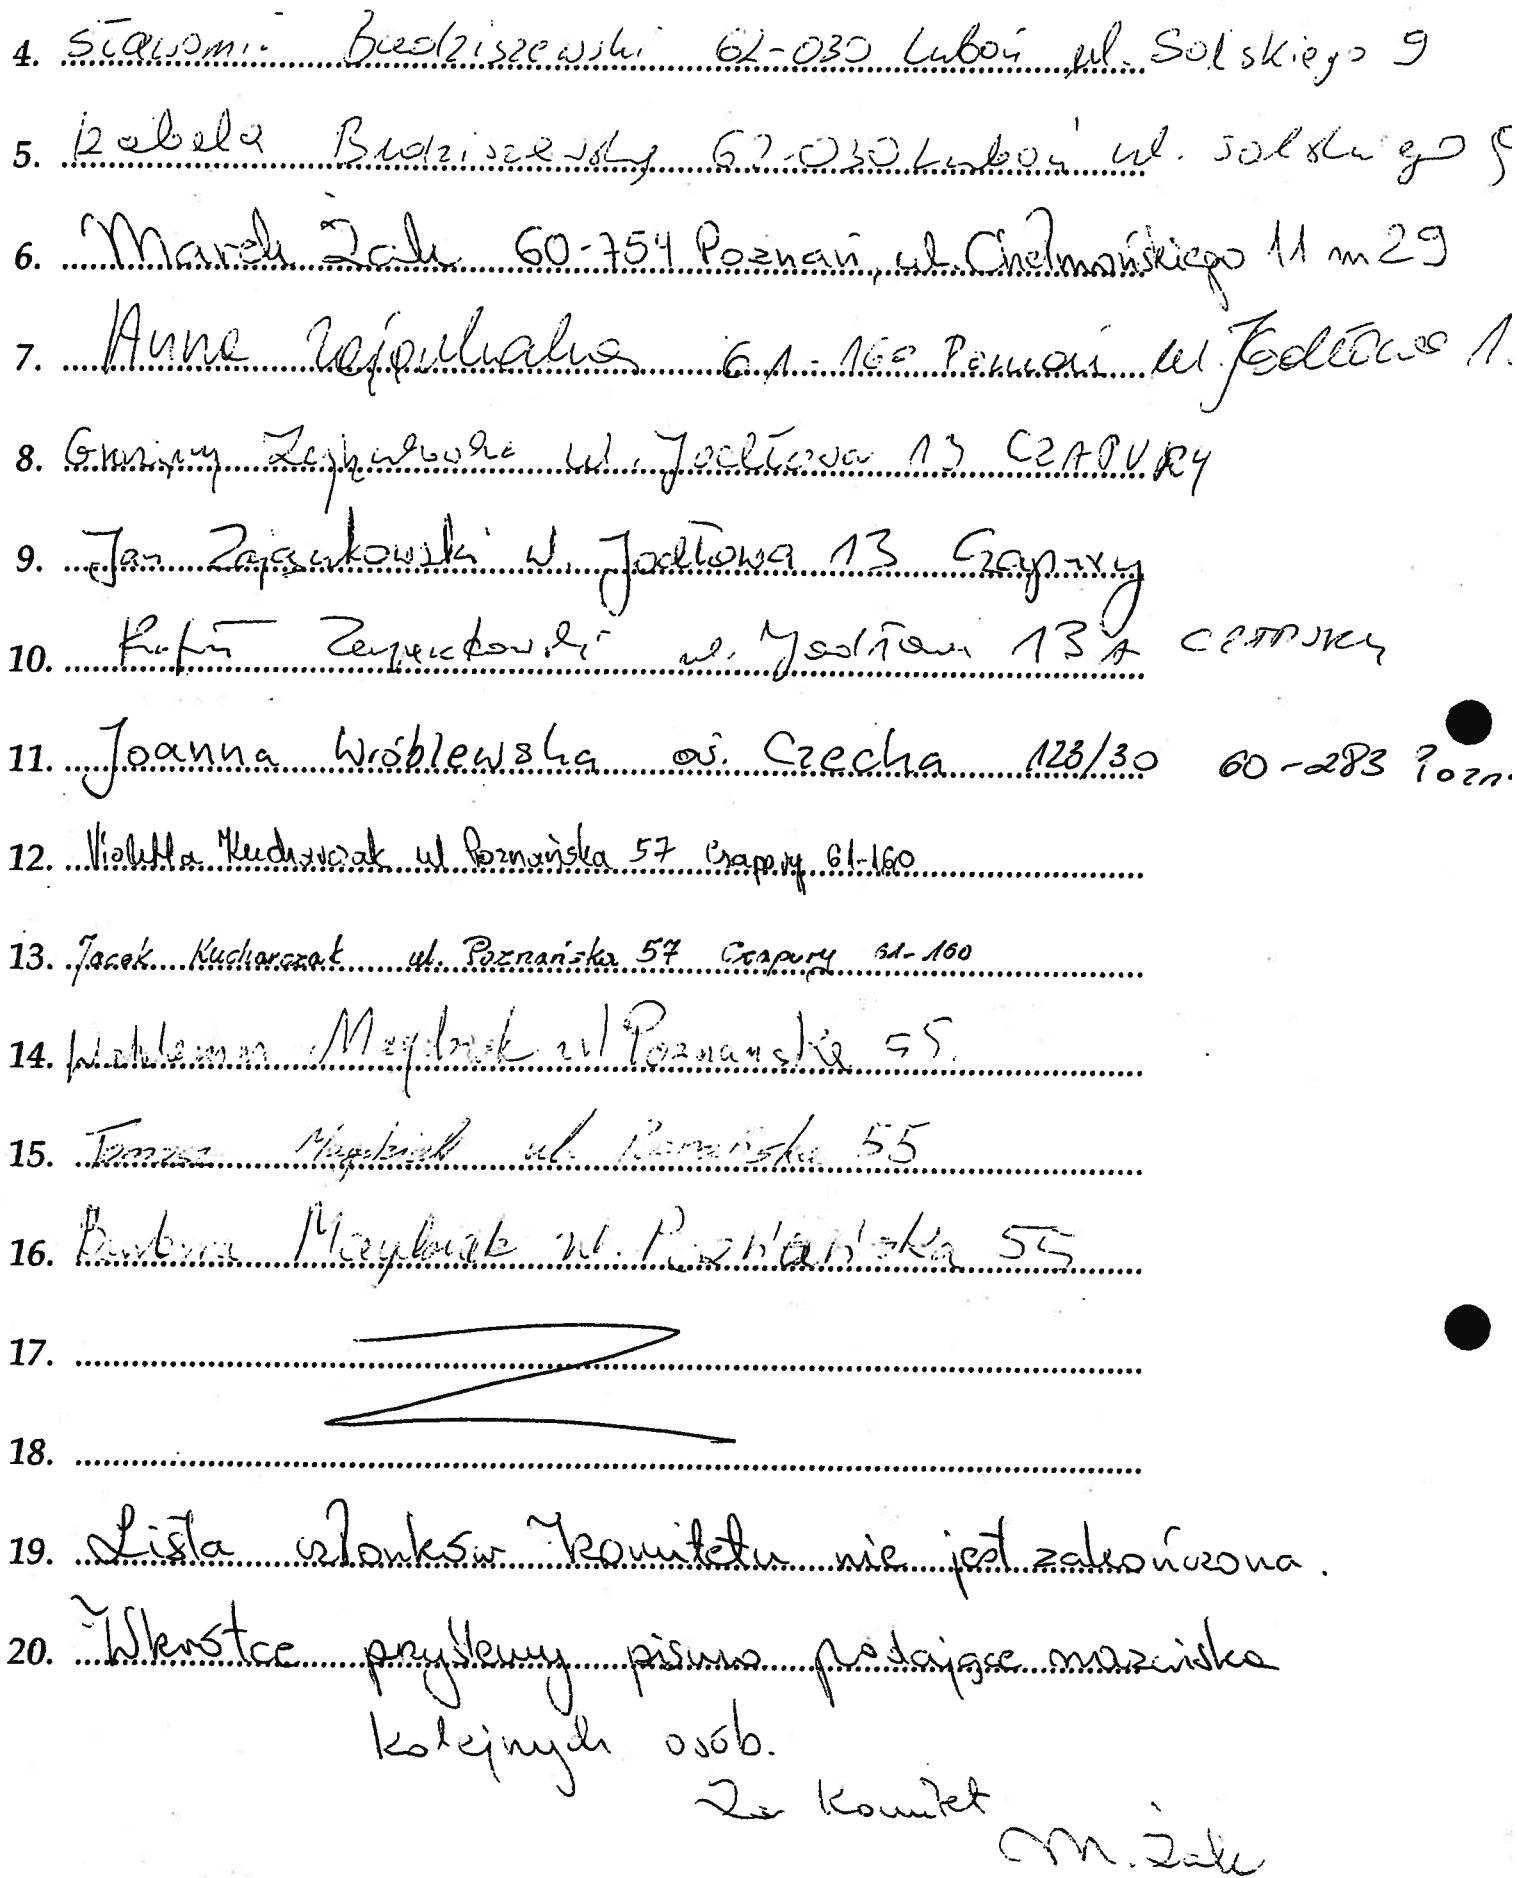 4. Sławomir Budziszewski 62-030 Luboń ul. Solskiego 9
5. Izabela Budziszewska 62-030 Luboń ul. Solskiego 9
6. Marek Żak 60-754 Poznań, ul. Chełmońskiego 11 m 29
7. Anna 61-160 Poznań ul. Jodłowa 1
8. Grażyna ul. Jodłowa 13 CZAPURY
9. Jan Zajączkowski ul. Jodłowa 13 Czapury
10. Rafał Zajączkowski ul. Jodłowa 13A CZAPURY
11. Joanna Wróblewska oś. Czecha 123/30 60-283 Pozn.
12. Violetta Kucharczak ul Poznańska 57 Czapury 61-160
13. Jacek Kucharczak ul. Poznańska 57 Czapury 61-160
14. Waldemar ul Poznańska 55.
15. Tomasz ul. Poznańska 55
16. Barbara ul. Poznańska 55
17.
18.
19. Lista członków Komitetu nie jest zakończona.
20. Wkrótce przyślemy pismo podające nazwiska
kolejnych osób.
Za Komitet
M. Żak